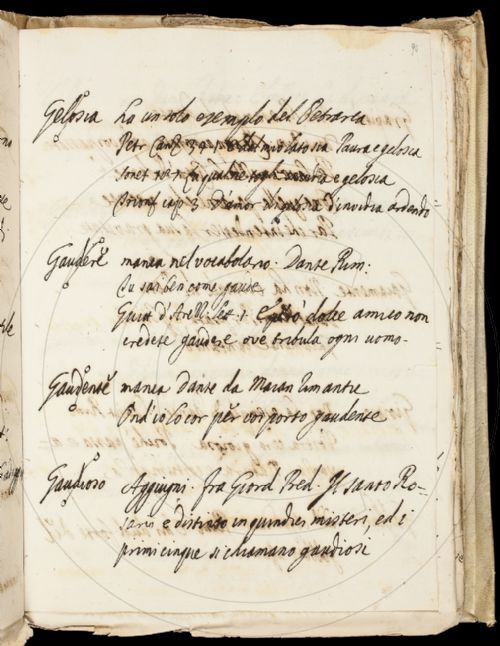 Gelosia ha un solo esempio del Petrarca
Petr Canz 39 mi volatosia Paura e gelosia
sonet e gelosia
Trionf cap. 3 D'amor di gelosia d'invidia ardendo
Gaudere manca nel vocabolario. Dante Rim.
Tu sai ben come gaude
Guitt d'Arezz. Let. 1. dolce amico non
credete gaudere ove tribula ogni uomo.
Gaudente manca Dante da Maian
Ond'io lo cor per voi porto gaudente
Gaudioso Aggiugni. fra Giord Pred. Il santo Ro-
sario e distinto in quindici misteri, ed i
primi cinque si chiamano gaudiosi